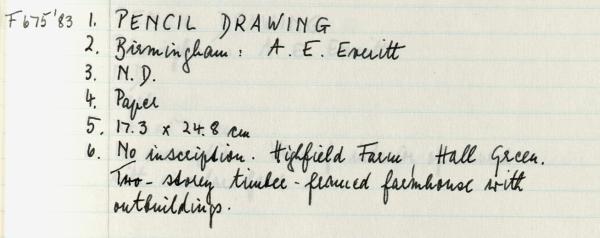 F675'83 1. PENCIL DRAWING
2. Birmingham: A. E. Everitt
3. N.D.
4. Paper
5. 17.3 x 24.8 cm
6. No inscription. Highfield Farm, Hall Green.
Two-storey timber-framed farmhouse with
outbuildings.